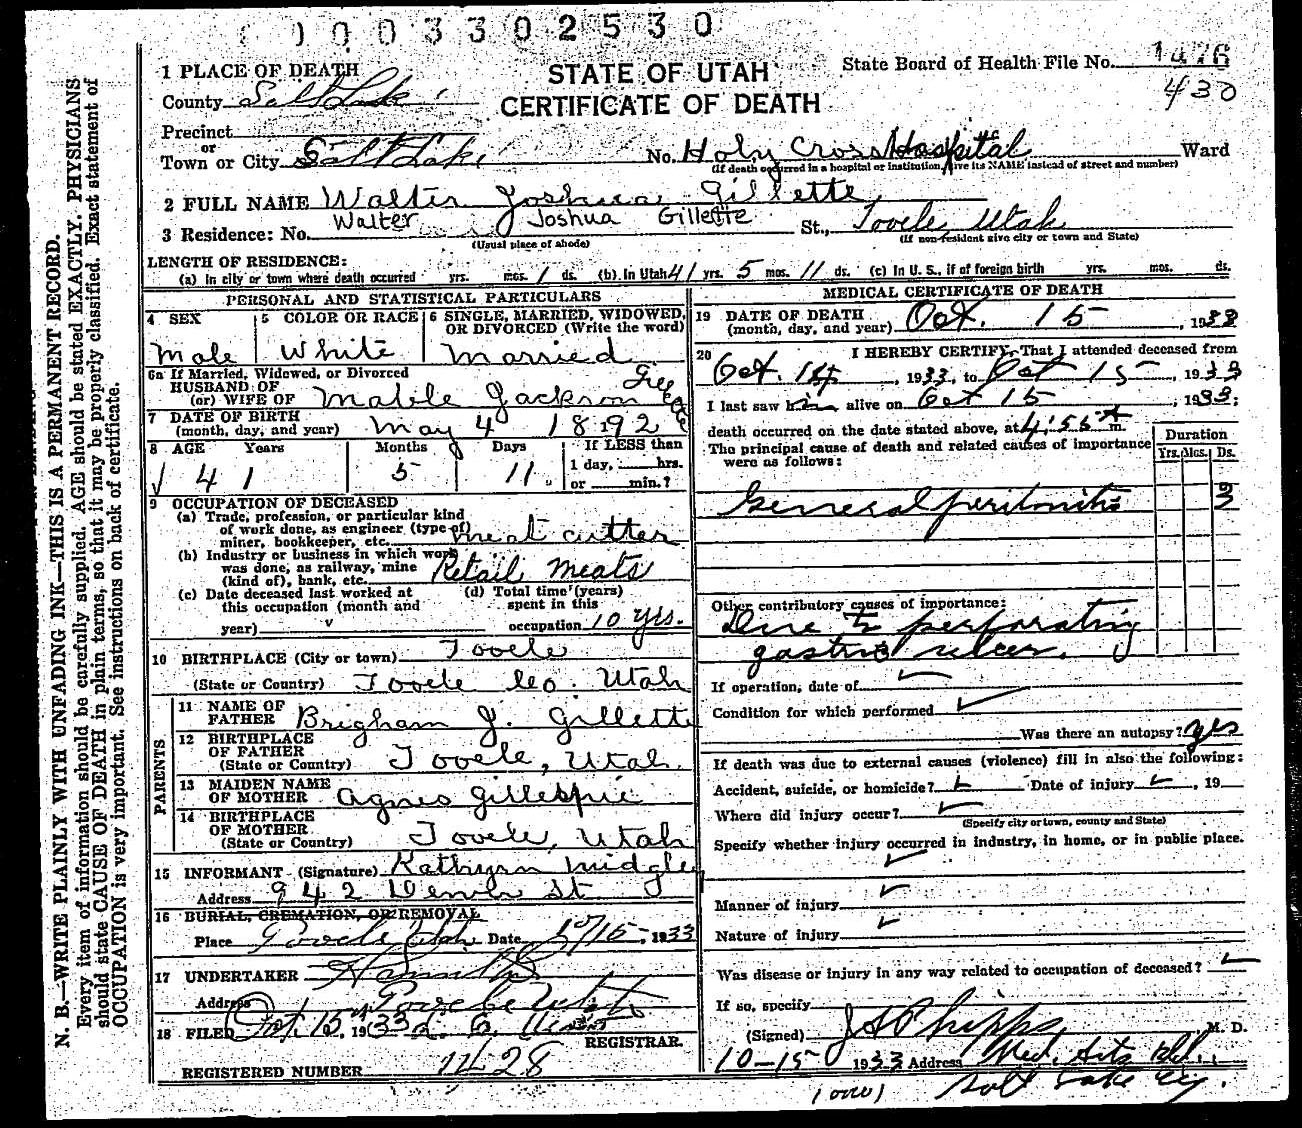 0003302530
1 PLACE OF DEATH
STATE OF UTAH
State Board of Health File No. 1476
County Salt Lake
CERTIFICATE OF DEATH
430
Precinct
or
Town or City Salt Lake No. Holy Cross Hospital Ward
(If death occurred in a hospital or institution, give its NAME instead of street and number)
2 FULL NAME Walter Joshua Gillette
Walter Joshua Gillette
3 Residence: No. St., Tooele, Utah
(Usual place of abode) (If non-resident give city or town and State)
LENGTH OF RESIDENCE:
(a) In city or town where death occurred yrs. mos. 1 ds. (b) In Utah 41 yrs. 5 mos. 11 ds. (c) In U. S., if of foreign birth yrs. mos. ds.
PERSONAL AND STATISTICAL PARTICULARS
4 SEX 5 COLOR OR RACE 6 SINGLE, MARRIED, WIDOWED, OR DIVORCED (Write the word)
Male White Married
6a If Married, Widowed, or Divorced
HUSBAND OF
(or) WIFE OF Mabile Jackson
7 DATE OF BIRTH
(month, day, and year) May 4 1892
8 AGE Years Months Days If LESS than
41 5 11 1 day, hrs.
or min.?
9 OCCUPATION OF DECEASED
(a) Trade, profession, or particular kind
of work done, as engineer (type of)
miner, bookkeeper, etc. Meat cutter
(b) Industry or business in which work
was done, as railway, mine
(kind of), bank, etc. Retail Meats
(c) Date deceased last worked at
this occupation (month and
year)
(d) Total time (years)
spent in this
occupation 10 yrs.
10 BIRTHPLACE (City or town) Tooele
(State or Country) Tooele Co. Utah
PARENTS
11 NAME OF
FATHER Brigham J. Gillette
12 BIRTHPLACE
OF FATHER
(State or Country) Tooele, Utah.
13 MAIDEN NAME
OF MOTHER Agnes Gillespie
14 BIRTHPLACE
OF MOTHER
(State or Country) Tooele, Utah
15 INFORMANT (Signature) Kathyrn Midgley
Address 942 St
16 BURIAL, CREMATION, OR REMOVAL
Place Tooele Utah Date 10/15, 1933
17 UNDERTAKER
Address Tooele Utah
18 FILED Oct. 15, 1933
REGISTRAR.
REGISTERED NUMBER 1428
MEDICAL CERTIFICATE OF DEATH
19 DATE OF DEATH
(month, day, and year) Oct. 15, 1933
20 I HEREBY CERTIFY, That I attended deceased from
Oct. 14, 1933, to Oct 15, 1933
I last saw him alive on Oct 15, 1933;
death occurred on the date stated above, at 4:55 A m.
The principal cause of death and related causes of importance
were as follows:
Duration
Yrs. Mos. Ds.
General peritonitis 3
Other contributory causes of importance:
Due to perforating
gastric ulcer.
If operation, date of
Condition for which performed
Was there an autopsy? yes
If death was due to external causes (violence) fill in also the following:
Accident, suicide, or homicide? Date of injury , 19
Where did injury occur?
(Specify city or town, county and State)
Specify whether injury occurred in industry, in home, or in public place.
Manner of injury
Nature of injury
Was disease or injury in any way related to occupation of deceased?
If so, specify
(Signed) Phipps, M. D.
10-15 1933 Address Med. Arts Bld.,
Salt Lake City.
N. B.—WRITE PLAINLY WITH UNFADING INK—THIS IS A PERMANENT RECORD.
Every item of information should be carefully supplied. AGE should be stated EXACTLY. PHYSICIANS
should state CAUSE OF DEATH in plain terms, so that it may be properly classified. Exact statement of
OCCUPATION is very important. See instructions on back of certificate.